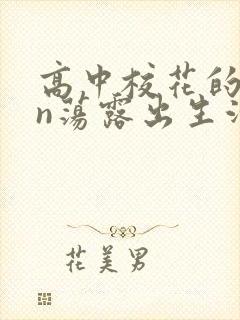 高中校花的
n荡露出生活
花美男